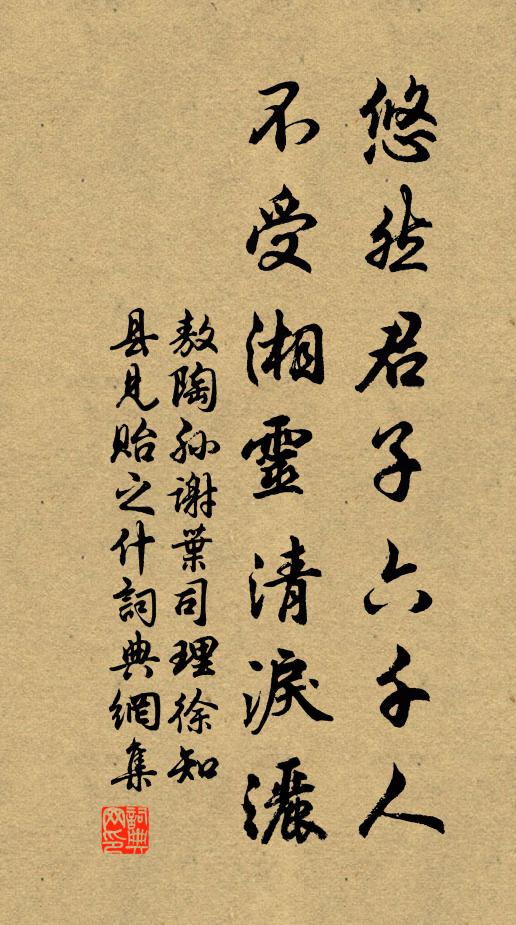 悠然君子六千人
不受湘靈清淚灑
敖陶孫謝葉司理徐知
县見貽之什詞典網集
詞典網印